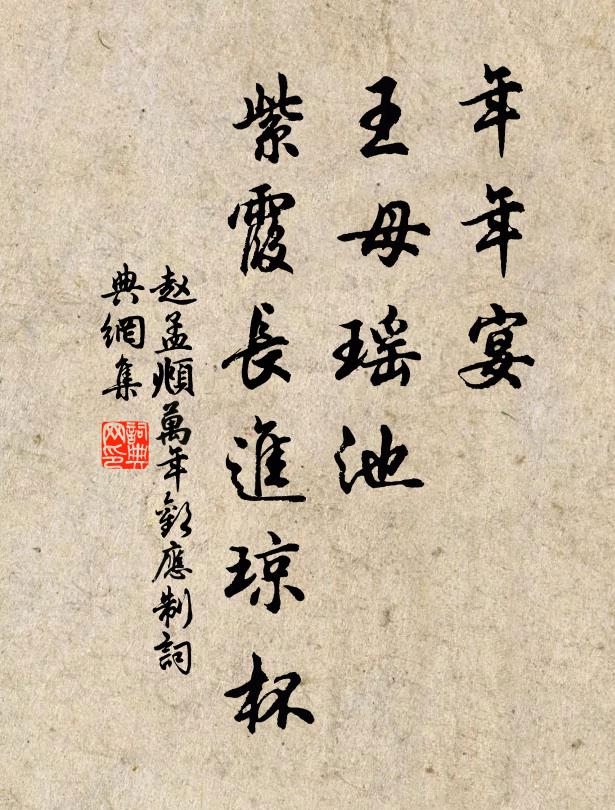 年年宴
王母瑶池
紫霞長進琼杯
赵孟頫萬年歡應制詞
典網集
詞典
网印